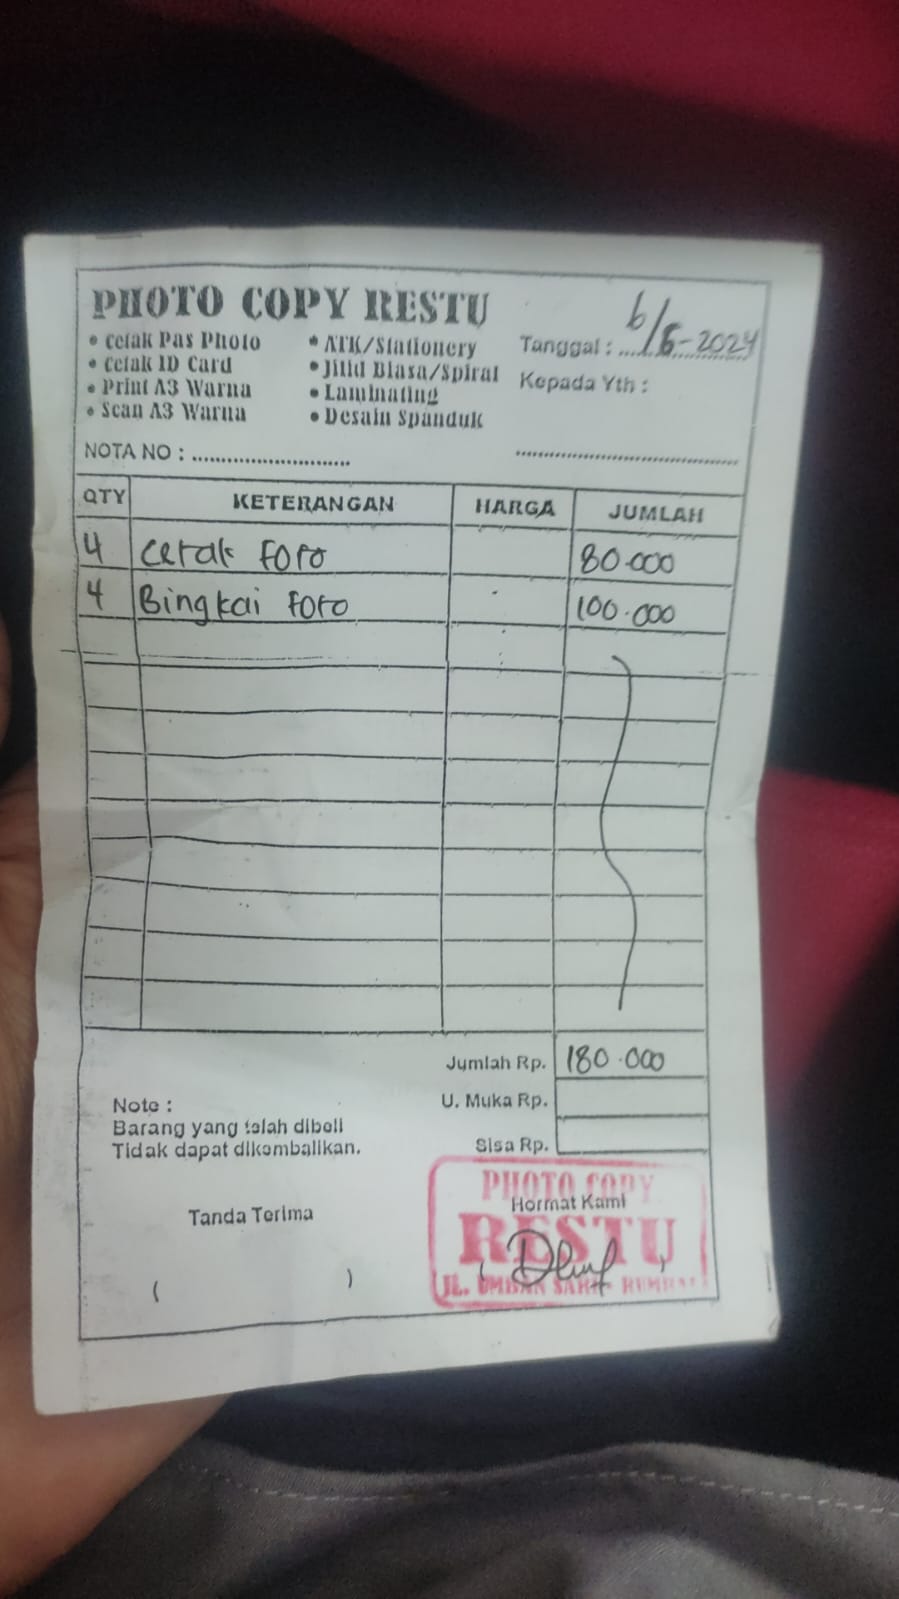 PHOTO COPY RESTU
• Cetak Pas Photo
• Cetak ID Card
• Print A3 Warna
• Scan A3 Warna
• ATK/Stationery
• Jilid Biasa/Spiral
• Laminating
• Desain Spanduk
Tanggal : 6/6-2024
Kepada Yth :
NOTA NO :
QTY KETERANGAN HARGA JUMLAH
4 Cetak Foto 80.000
4 Bingkai Foto 100.000
Jumlah Rp. 180.000
U. Muka Rp.
Sisa Rp.
Note :
Barang yang telah dibeli
Tidak dapat dikembalikan.
Tanda Terima
( )
PHOTO COPY
Hormat Kami
RESTU
JL. UMBAN SARI - RUMBAI